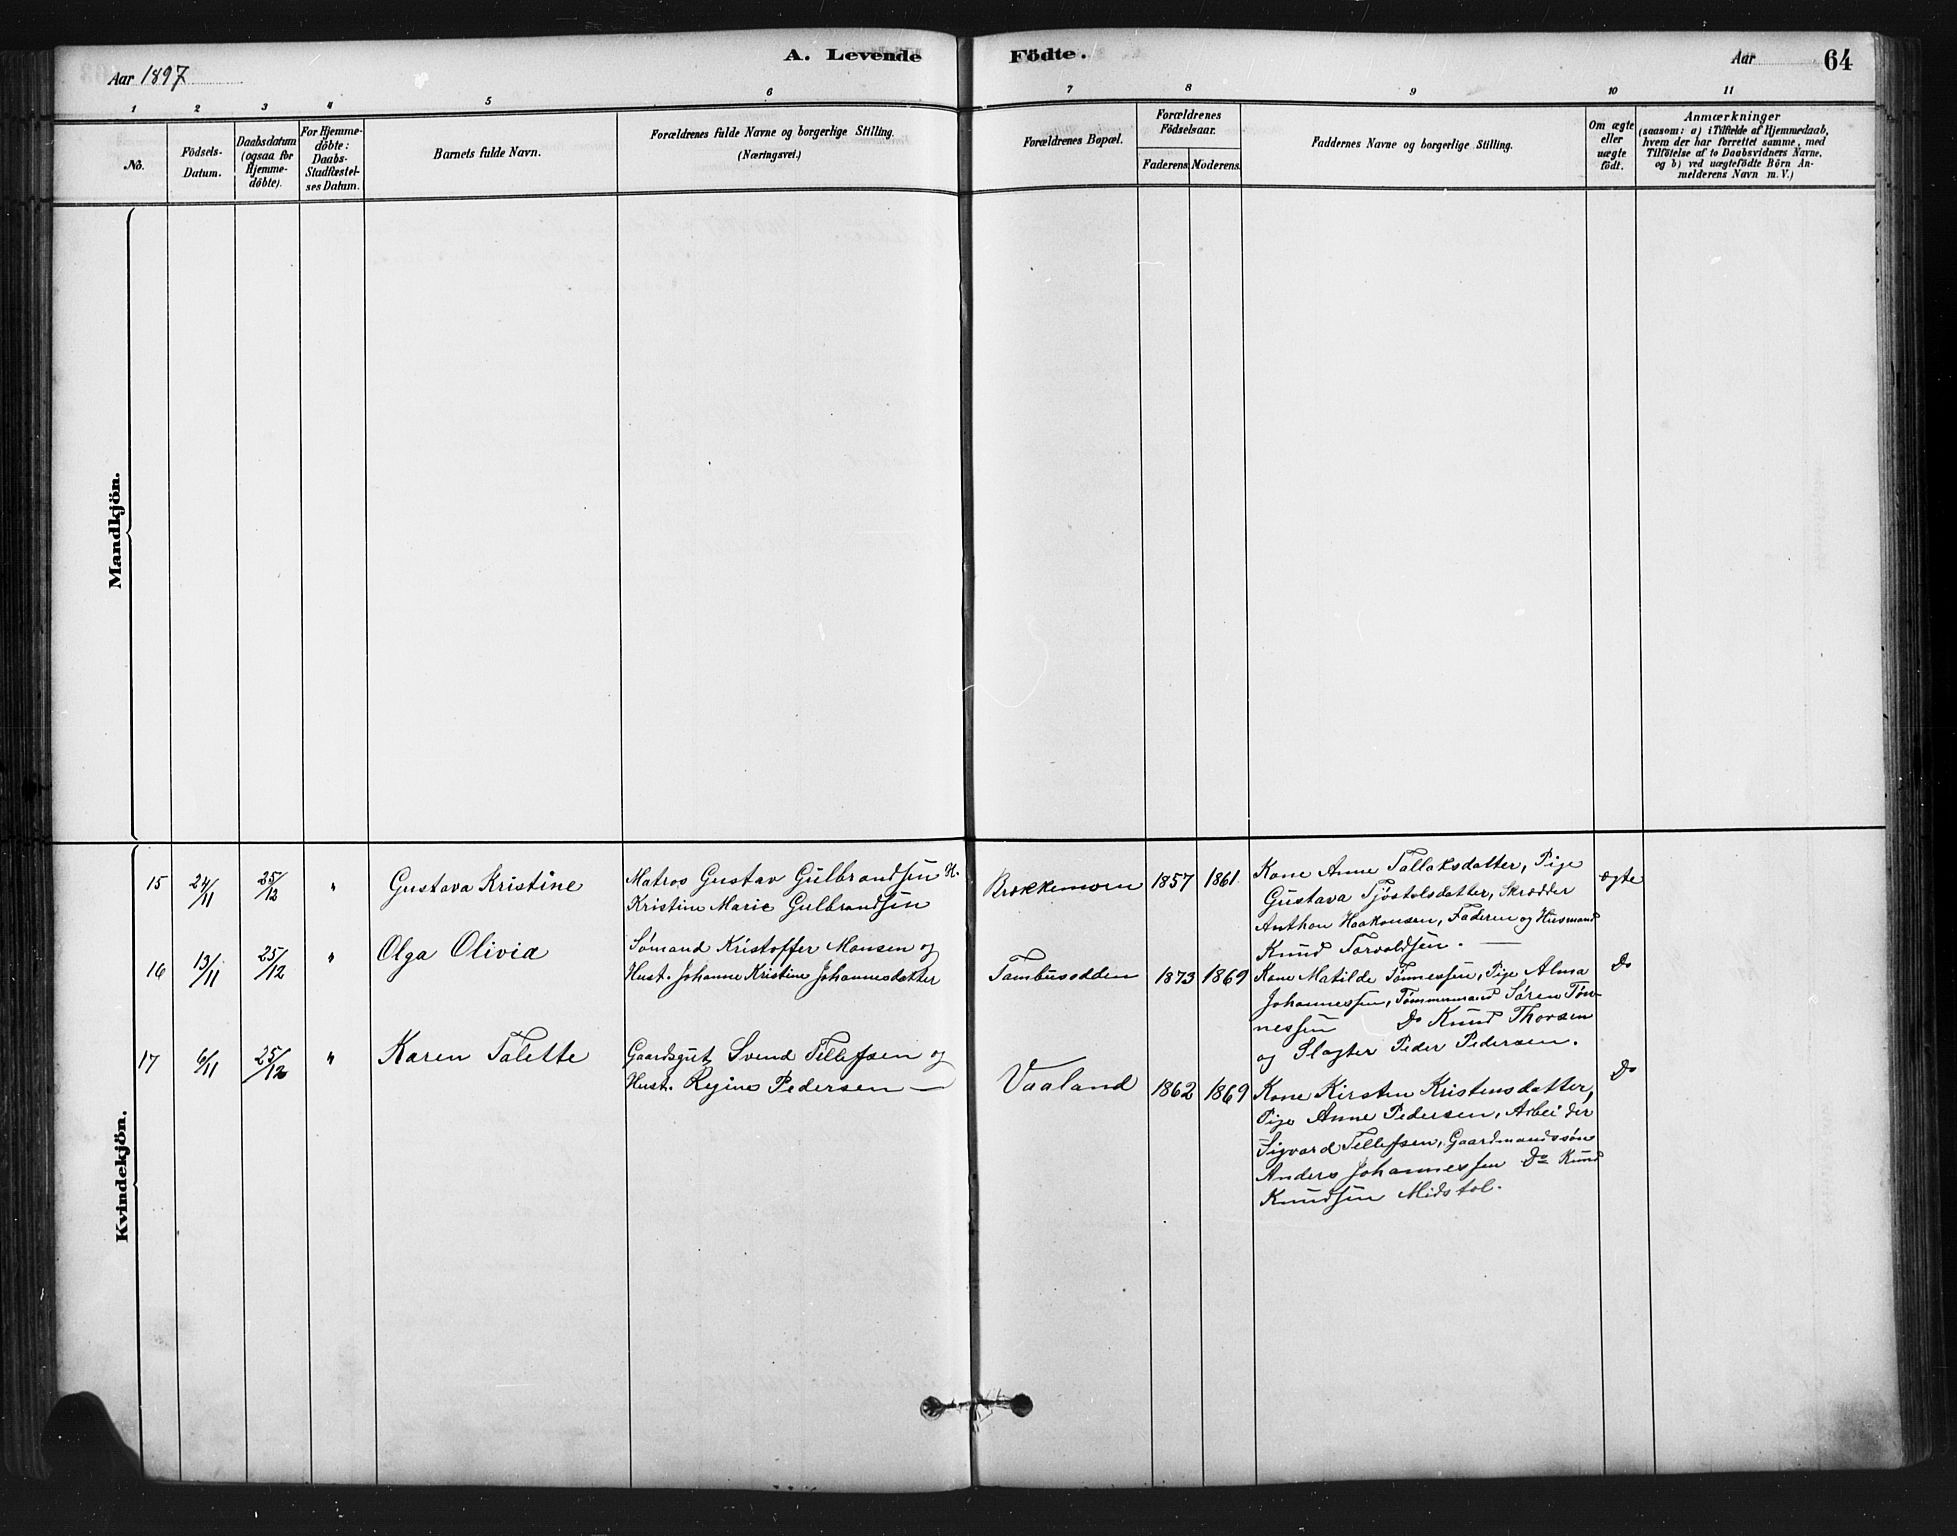 A. Levende Födte.
Aar 1897
Aar
64
1 2 3 4 5 6 7 8 9 10 11
No.
Födsels-
Datum.
Daabsdatum
(ogsaa for
Hjemme-
döbte).
For Hjemme-
döbte:
Daabs-
Stadfæstel-
ses Datum.
Barnets fulde Navn.
Forældrenes fulde Navne og borgerlige Stilling.
(Næringsvei.)
Forældrenes Bopæl.
Forældrenes
Födselsaar.
Faderens. Moderens.
Faddernes Navne og borgerlige Stilling.
Om ægte
eller
uægte
födt.
Anmærkninger
(saasom: a) i Tilfælde af Hjemmedaab,
hvem der har forrettet samme, med
Tilföielse af to Daabsvidners Navne,
og b) ved uægtefödte Börn An-
melderens Navn m. V.)
Mandkjön.
Kvindekjön.
15 24/11 25/12 " Gustava Kristine
Matros Gustav Gulbrandsen H.
Kristine Marie Gulbrandsen
Brækkemoen 1857 1861
Kone Anne Tallaksdatter, Pige
Gustava Tjöstolsdatter, Skrædder
Anthon Haakonsen, Faderen og Husmand
Knud Torvoldsen.
ægte
16 13/11 25/12 " Olga Olivia
Sömand Kristoffer Monsen og
Hust. Johanne Kristine Johannesdatter
Tambusodden 1873 1869
Kone Matilde Tönnessen, Pige Alma
Johannessen, Tömmermand Sören Tön-
nessen Do Knud Thorsen
og Slagter Peder Pedersen.
Do
17 6/11 25/12 " Karen Talette
Gaardsgut Svend Tellefsen og
Hust. Regine Pedersen
Vaaland 1862 1869
Kone Kirsten Kristensdatter,
Pige Anne Pedersen, Arbeider
Sigvard Tellefsen, Gaardmandssön
Anders Johannessen Do Knud
Knudsen Midstol.
Do